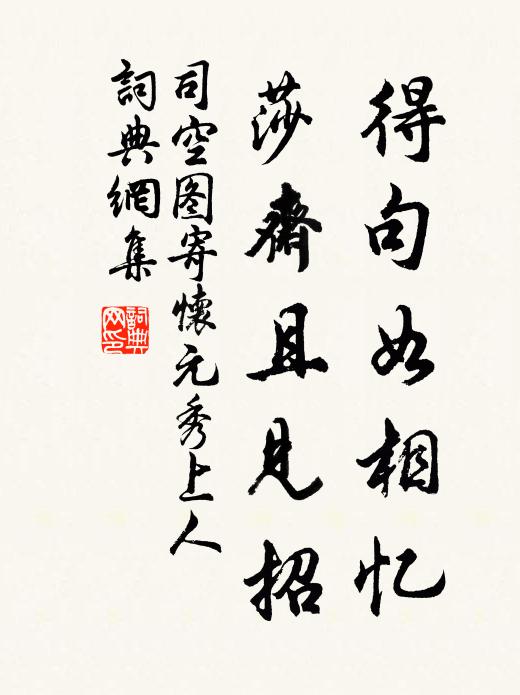 得句如相忆
莎斋且见招
司空图寄懷元秀上人
詞典網集
詞典网印